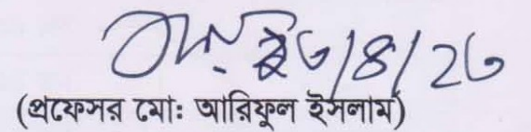 ২৩/৪/২৩
(প্রফেসর মোঃ আরিফুল ইসলাম)